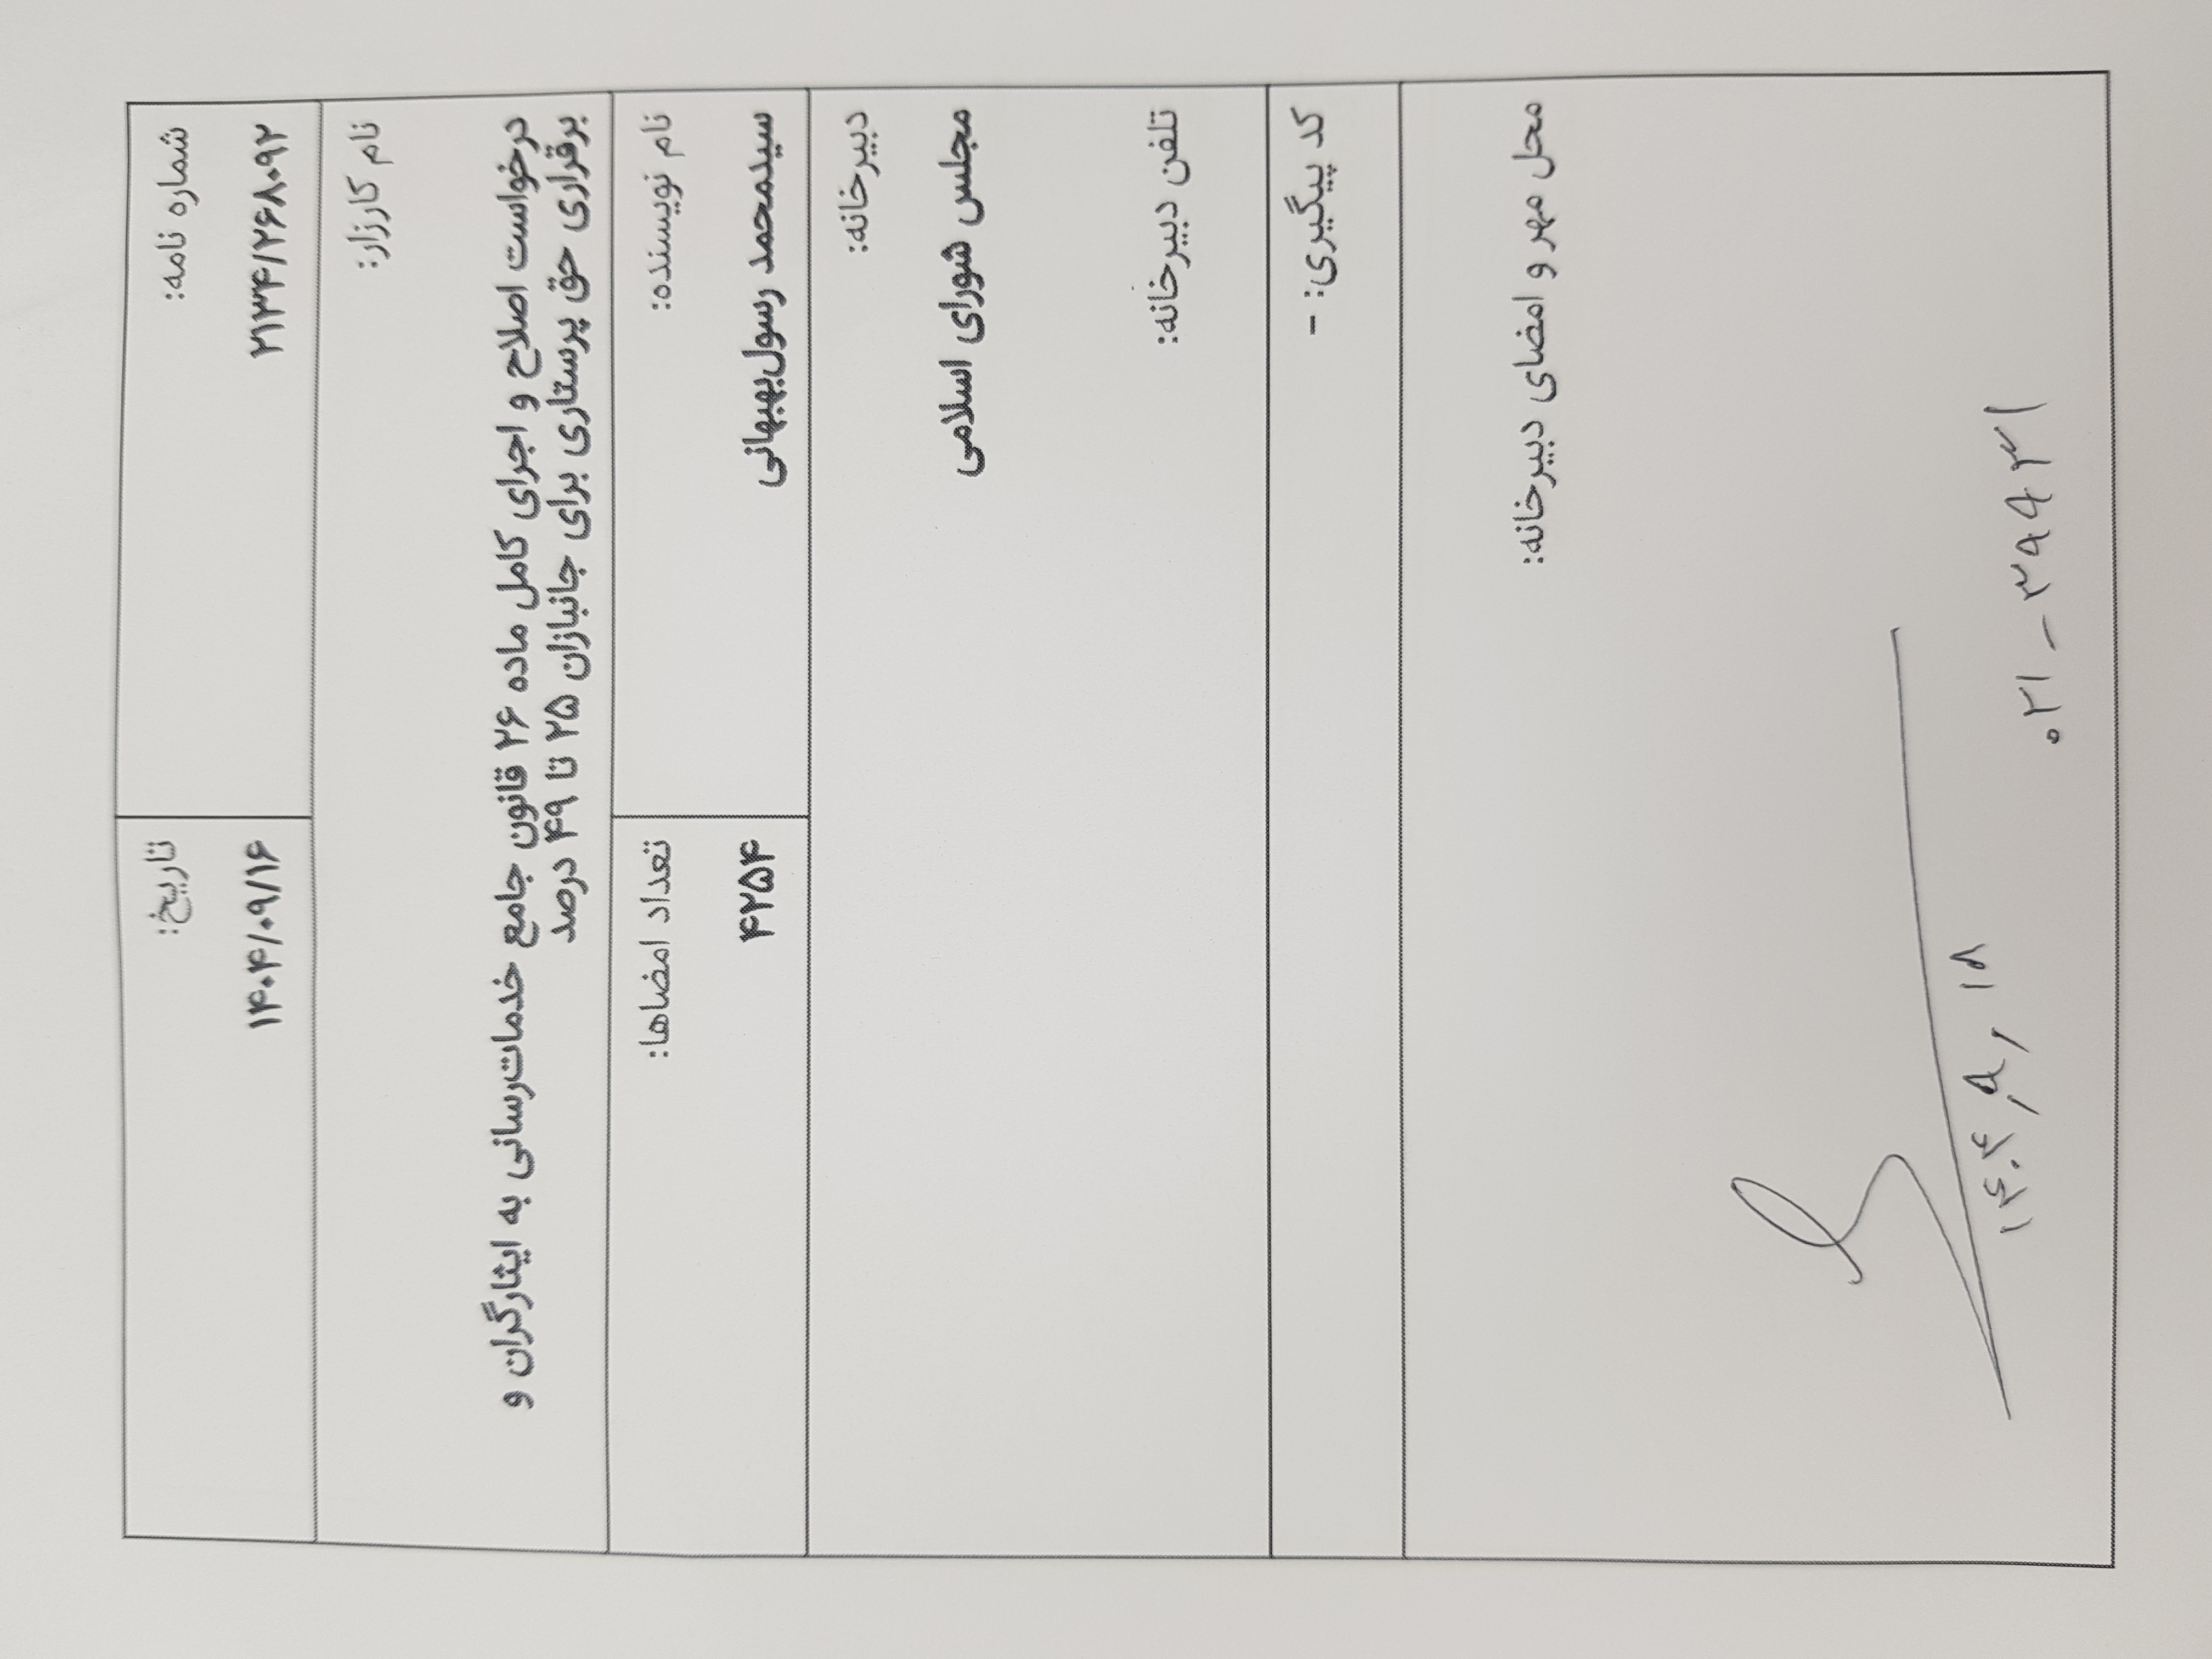 شماره نامه:
۲۱۳۴/۲۶۸۰۹۲
تاریخ:
۱۴۰۴/۰۹/۱۶
نام کارزار:
درخواست اصلاح و اجرای کامل ماده ۲۶ قانون جامع خدمات‌رسانی به ایثارگران و
برقراری حق پرستاری برای جانبازان ۲۵ تا ۴۹ درصد
نام نویسنده:
سیدمحمد رسول‌بهبهانی
تعداد امضاها:
۴۲۵۴
دبیرخانه:
مجلس شورای اسلامی
تلفن دبیرخانه:
کد پیگیری: -
محل مهر و امضای دبیرخانه:
۱۴۰۴,۹,۱۸
۰۲۱-۳۹۹۳۱